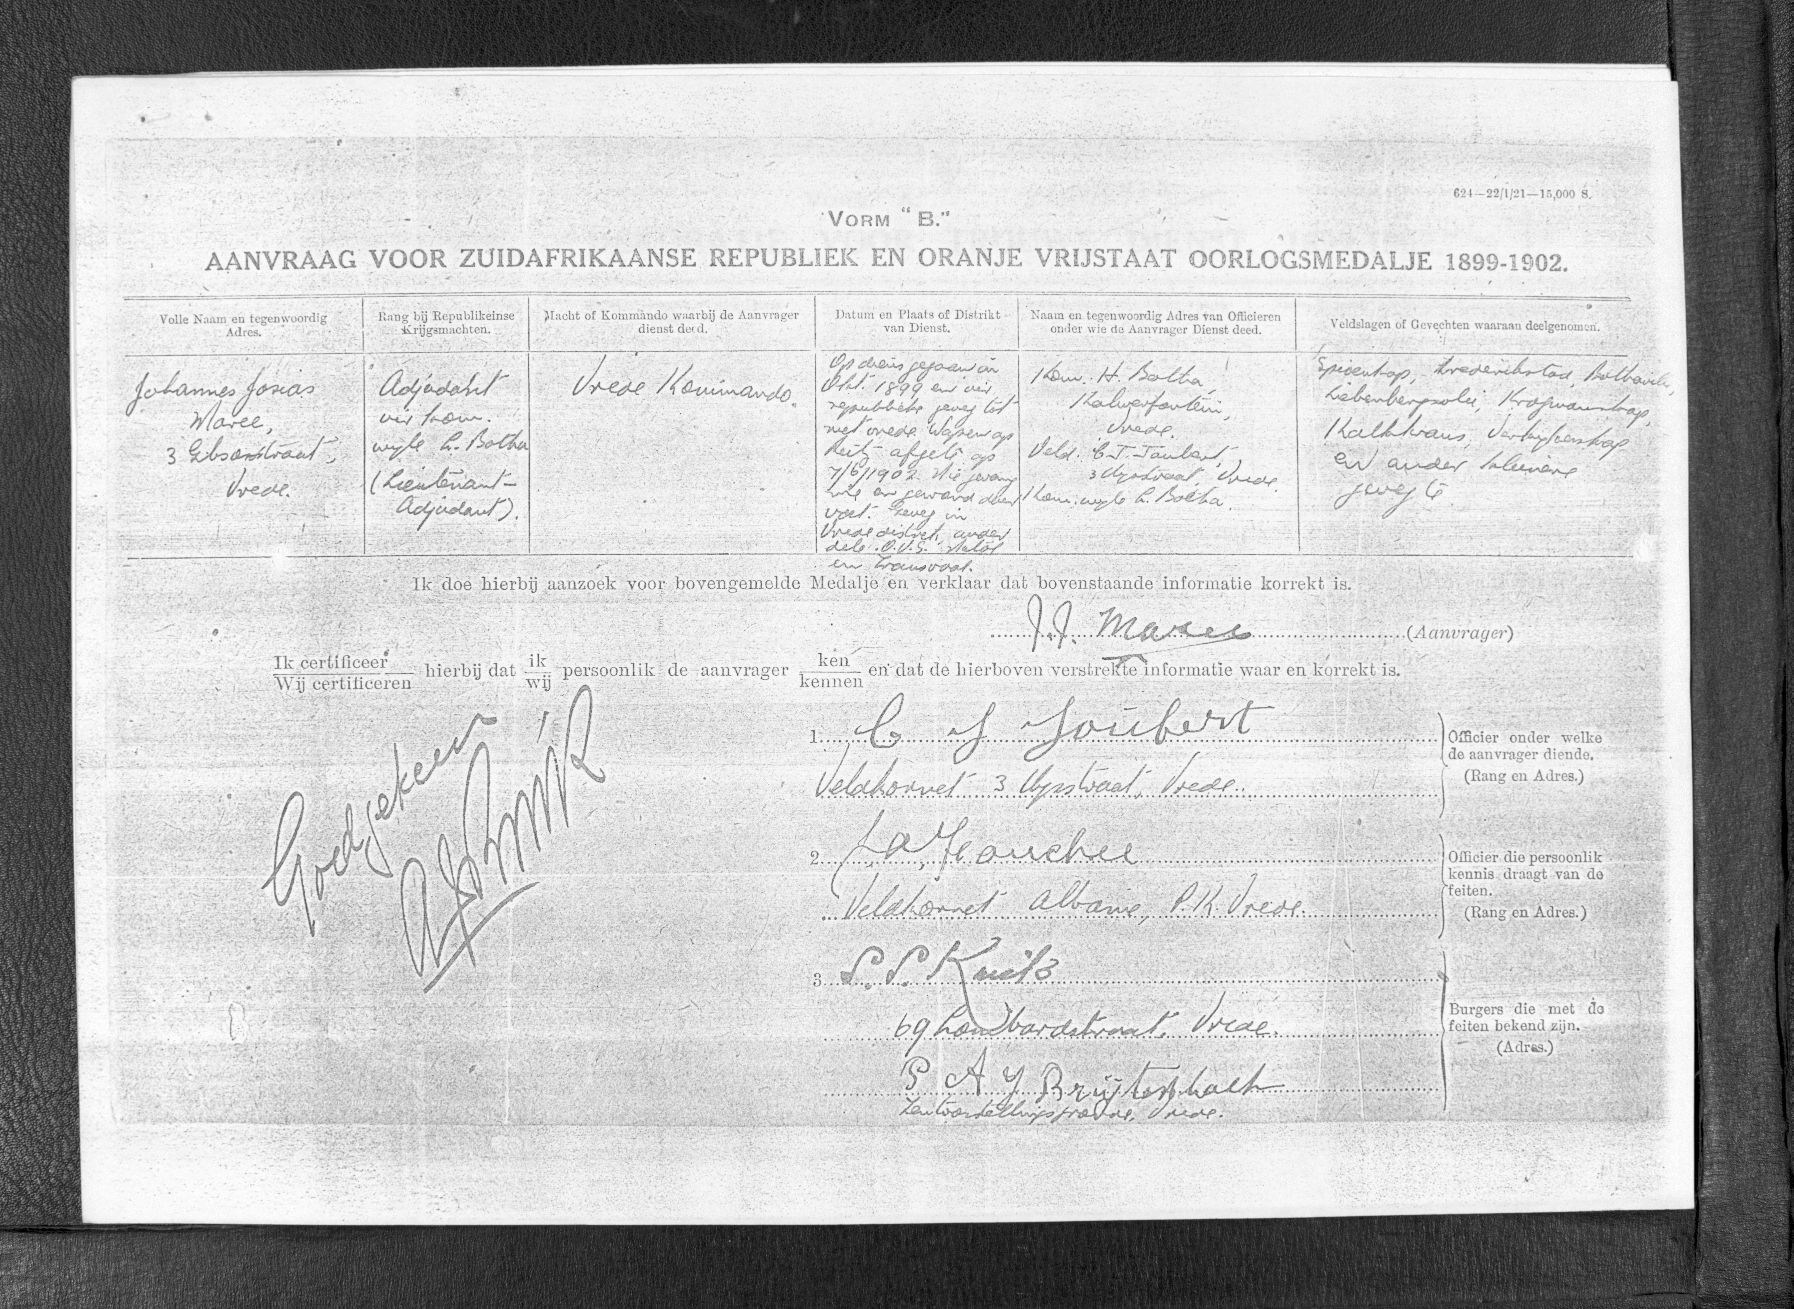 624—22/1/21—15,000 S.
VORM "B."
AANVRAAG VOOR ZUIDAFRIKAANSE REPUBLIEK EN ORANJE VRIJSTAAT OORLOGSMEDALJE 1899-1902.
Volle Naam en tegenwoordig
Adres.
Rang bij Republikeinse
Krijgsmachten.
Macht of Kommando waarbij de Aanvrager
dienst deed.
Datum en Plaats of Distrikt
van Dienst.
Naam en tegenwoordig Adres van Officieren
onder wie de Aanvrager Dienst deed.
Veldslagen of Gevechten waaraan deelgenomen.
Johannes Josias
Maree,
3 straat,
Vrede.
Adjudant
vir Kom.
wyle L. Botha
(Lieutenant-
Adjudant).
Vrede Kommando.
Op diens gegaan in
Okt. 1899 en vir
republieke geveg tot
met vrede. Wapen op
Reitz afgelê op
7/6/1902. Nie gevang
nie en gewond
Geveg in
Vrede distrik, ander
dele O.V.S. Natal
en Transvaal.
Kom. H. Botha,
Kalverfontein,
Vrede.
Veld. C. J. Joubert,
3 Uysstraat, Vrede.
Kom. wyle L. Botha.
Spioenkop, Frederikstad, Bothaville,
Liebenbergsvlei,
Kalkkrans,
en ander kleinere
gevegte.
Ik doe hierbij aanzoek voor bovengemelde Medalje en verklaar dat bovenstaande informatie korrekt is.
J. J. Maree (Aanvrager)
Ik certificeer
Wij certificeren
hierbij dat
ik
wij
persoonlik de aanvrager
ken
kennen
en dat de hierboven verstrekte informatie waar en korrekt is.
Goedgekeur
1. C J Joubert
Veldkornet 3 Uysstraat, Vrede.
Officier onder welke
de aanvrager diende.
(Rang en Adres.)
2.
Veldkornet Albanie, P.K. Vrede.
Officier die persoonlik
kennis draagt van de
feiten.
(Rang en Adres.)
3. P. P. Knitz
69 Lombardstraat, Vrede.
P A J Brijtenbach
Vrede.
Burgers die met de
feiten bekend zijn.
(Adres.)